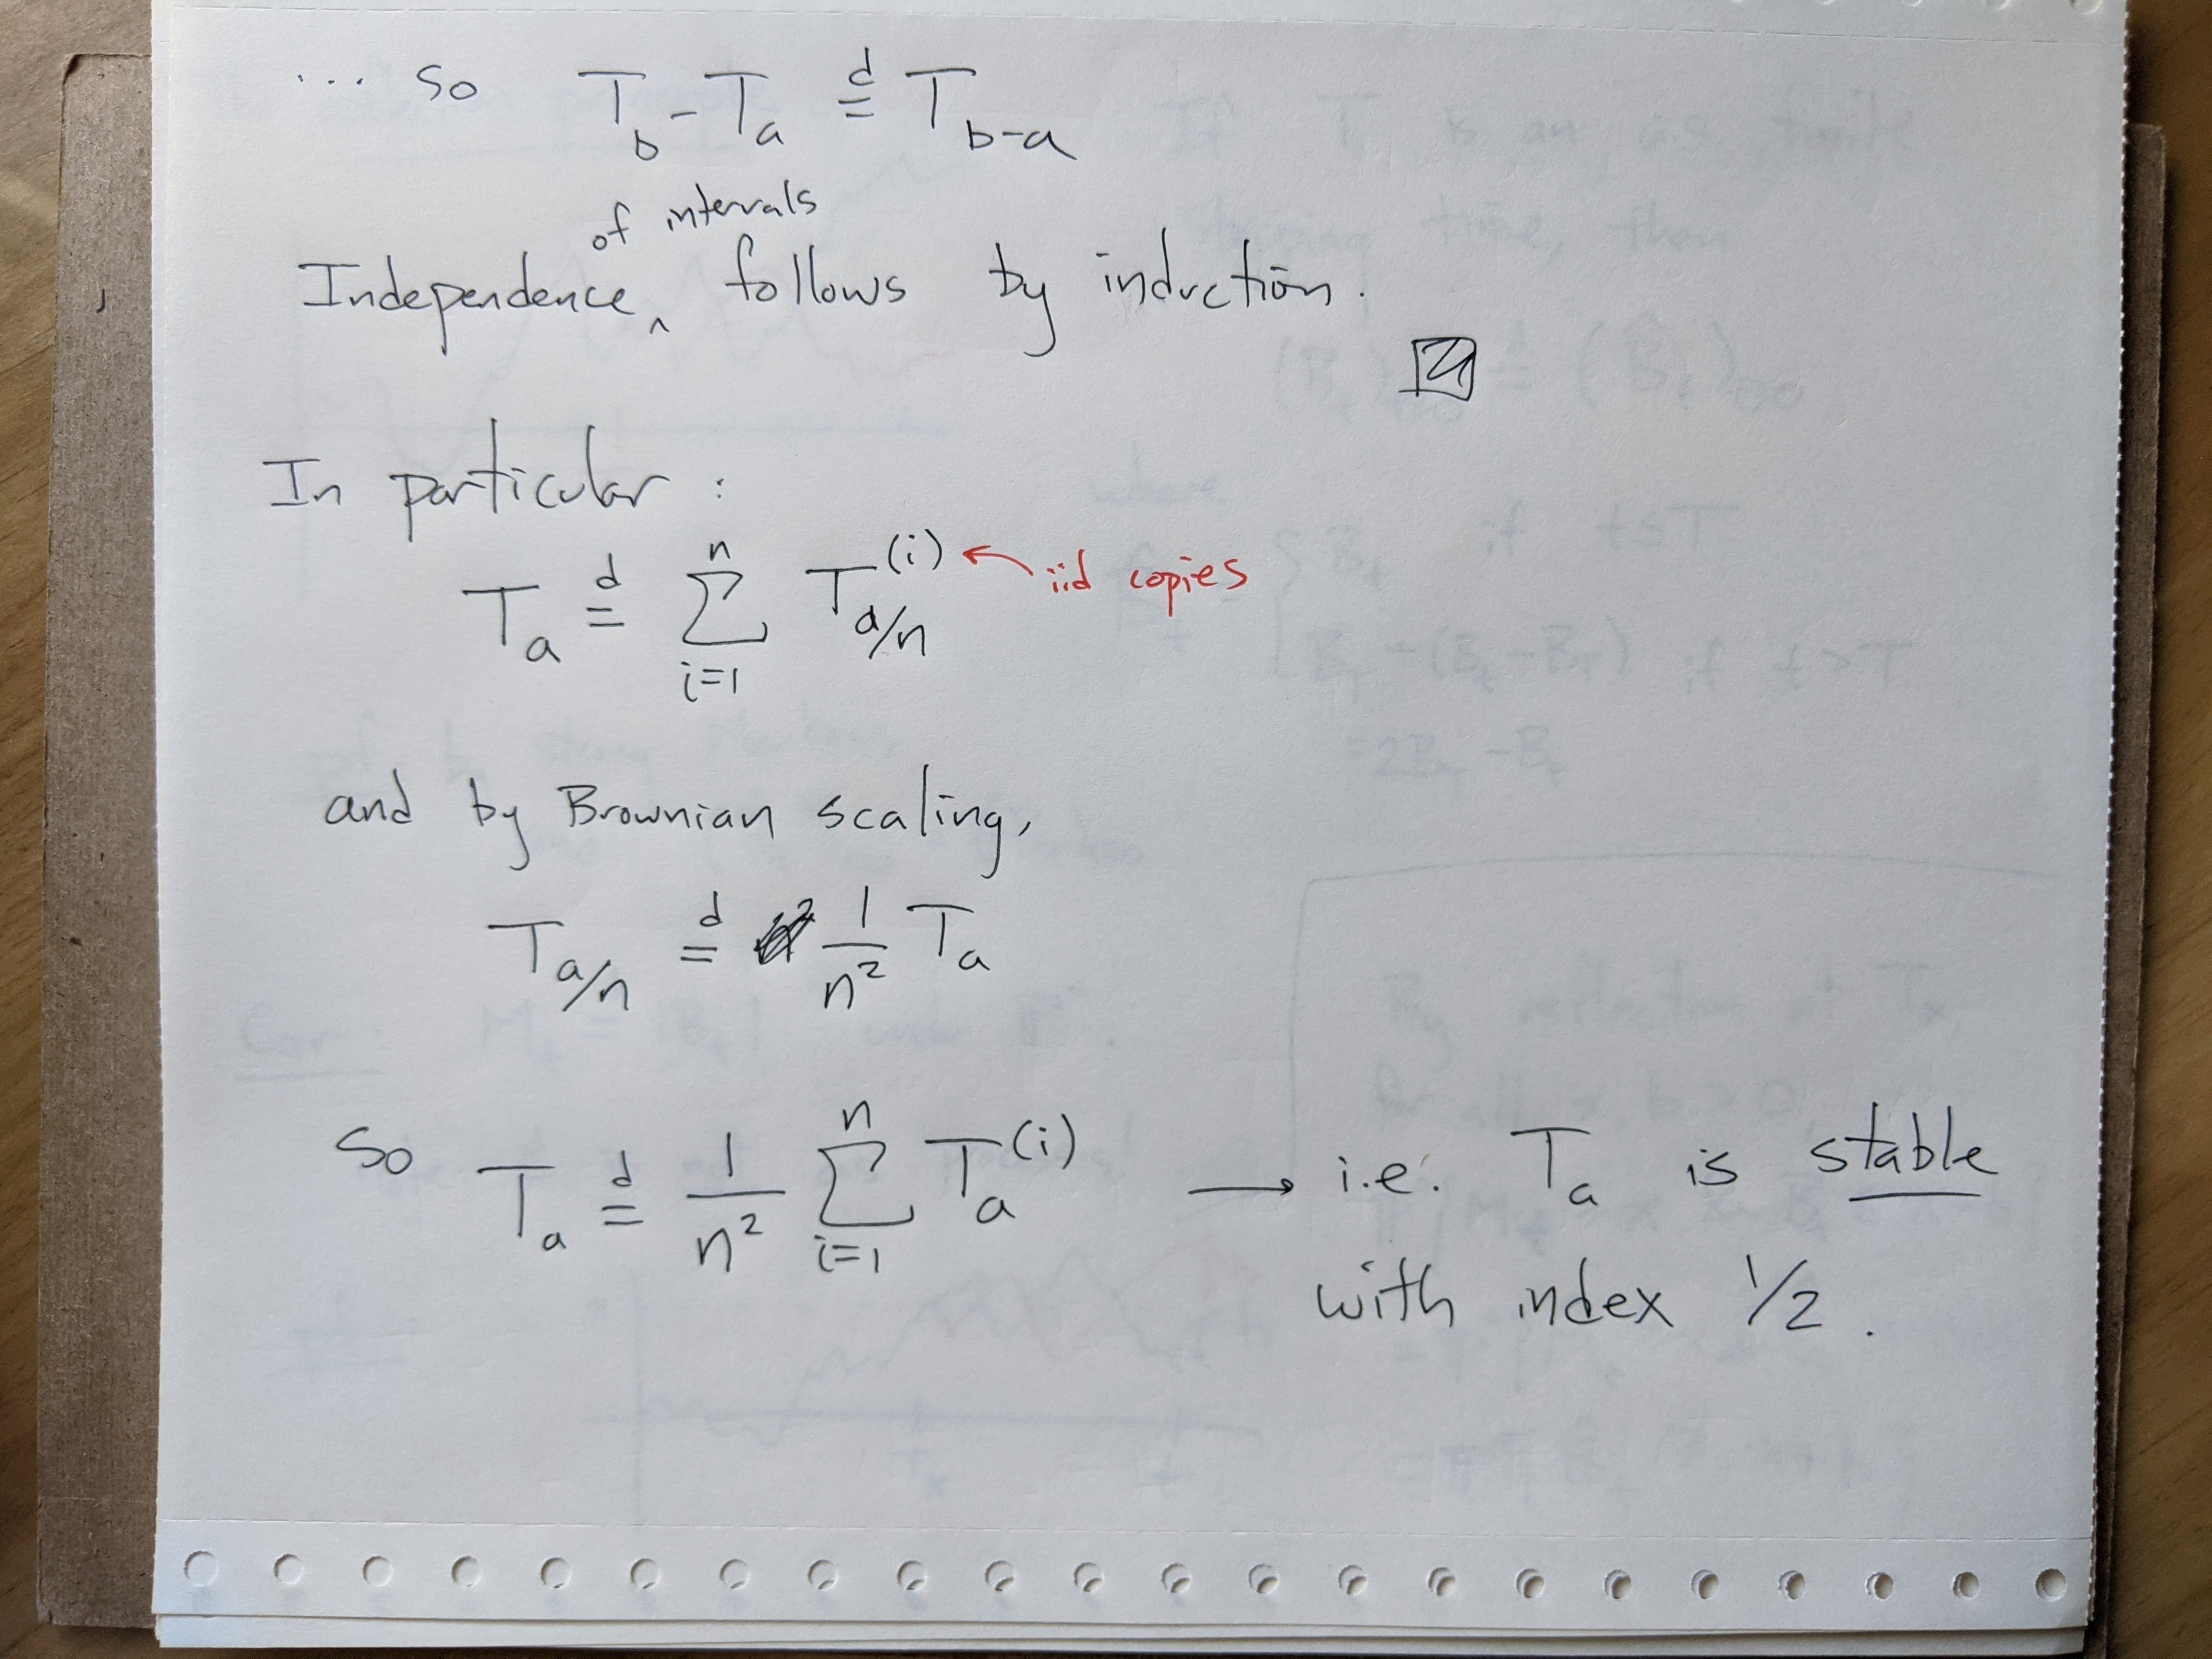 ... So T_b - T_a \stackrel{d}{=} T_{b-a}
of intervals
Independence ‸ follows by induction.
In particular :
T_a \stackrel{d}{=} \sum_{i=1}^{n} T_{a/n}^{(i)} ← iid copies
and by Brownian scaling,
T_{a/n} \stackrel{d}{=} \frac{1}{n^2} T_a
So T_a \stackrel{d}{=} \frac{1}{n^2} \sum_{i=1}^{n} T_a^{(i)} → i.e. T_a is stable
with index 1/2.